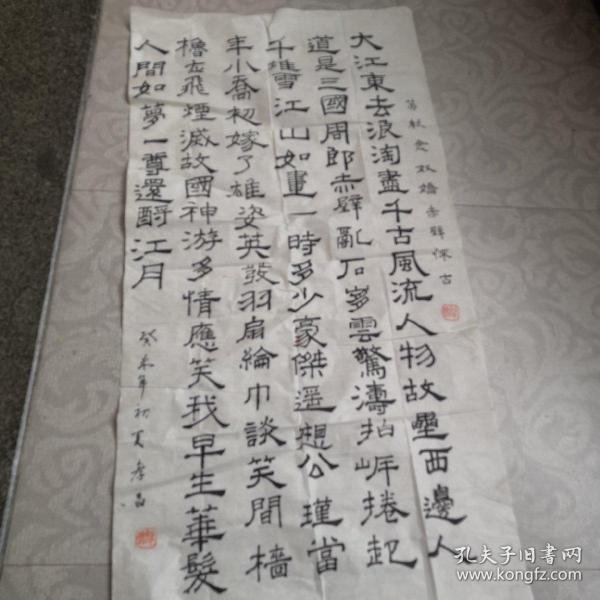 蘇軾念奴嬌赤壁懷古
大江東去浪淘盡千古風流人物故壘西邊人
道是三國周郎赤壁亂石穿雲驚濤拍岸捲起
千堆雪江山如畫一時多少豪傑遥想公瑾當
年小喬初嫁了雄姿英發羽扇綸巾談笑間檣
櫓灰飛煙滅故國神游多情應笑我早生華髮
人間如夢一尊還酹江月
癸未年初夏
孔夫子旧书网
www.kongfz.com